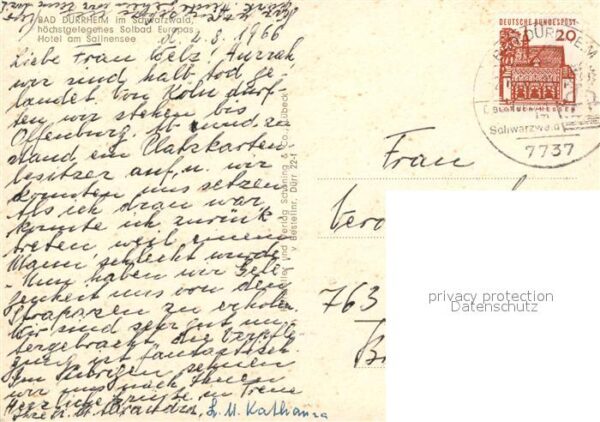 BAD DÜRRHEIM im Schwarzwald,
höchstgelegenes Solbad Europas
Hotel am Salinensee
d. 2. 8. 1966
Liebe Frau Welz, Anzah
wir sind halb tod ge-
landet. Von Köln durf-
ten wir stehen bis
Offenburg. Ab
stand ein Platzkarten
besitzer auf, u. wir
konnten uns setzen
Als ich dran war,
konnte ich zurück
treten weil einem
Mann, schlecht wurde
- Nun haben wir Gele-
genheit uns von den
Strapazen zu erholen
Wir sind sehr gut un-
tergebracht, die Verpfle-
gung ist fantastisch.
Im Übrigen sehnen
wir uns nach Ihnen
Herzliche Grüsse in Treue
Ihre
L. M. Katharina
Verlag Schöning & Co., Lübeck
Bestellnr. Dürr 224
DEUTSCHE BUNDESPOST
20
LORSCH/HESSEN
BAD DÜRRHEIM
im
Schwarzwald
7737
Frau
763
privacy protection
Datenschutz